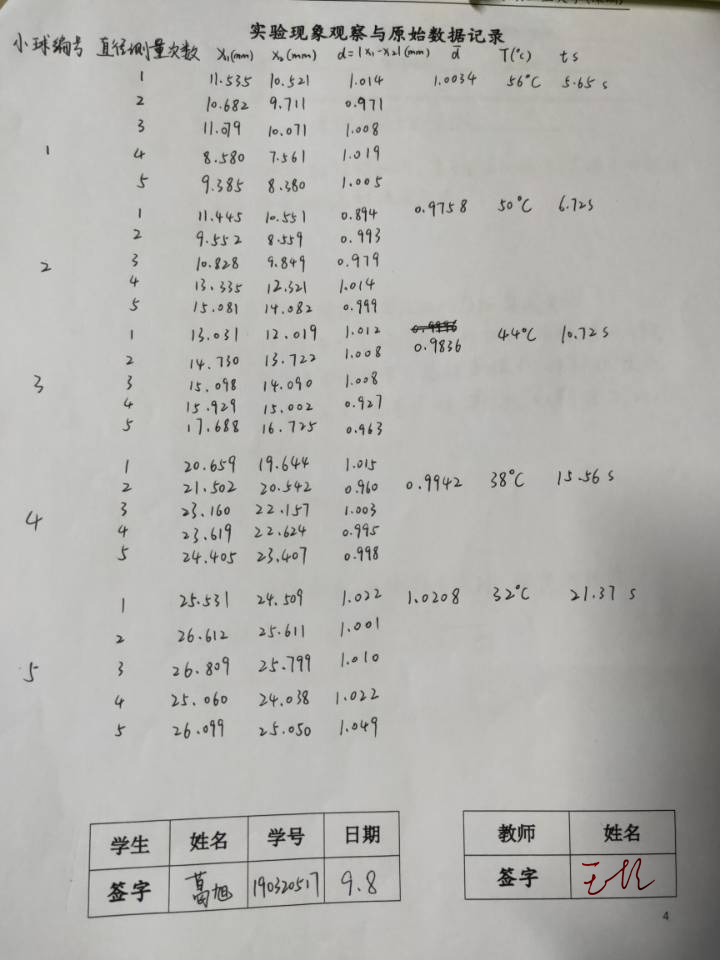 实验现象观察与原始数据记录
小球编号 直径测量次数 X₁(mm) X₂(mm) d=|X₁-X₂|(mm) d̄ T(℃) t s
1 11.535 10.521 1.014 1.0034 56℃ 5.65 s
2 10.682 9.711 0.971
3 11.079 10.071 1.008
1 4 8.580 7.561 1.019
5 9.385 8.380 1.005
1 11.445 10.551 0.894 0.9758 50℃ 6.72s
2 9.552 8.559 0.993
2 3 10.828 9.849 0.979
4 13.335 12.321 1.014
5 15.081 14.082 0.999
1 13.031 12.019 1.012 44℃ 10.72s
2 14.730 13.722 1.008 0.9836
3 3 15.098 14.090 1.008
4 15.929 15.002 0.927
5 17.688 16.725 0.963
1 20.659 19.644 1.015
2 21.502 20.542 0.960 0.9942 38℃ 15.56 s
3 23.160 22.157 1.003
4 4 23.619 22.624 0.995
5 24.405 23.407 0.998
1 25.531 24.509 1.022 1.0208 32℃ 21.37 s
2 26.612 25.611 1.001
5 3 26.809 25.799 1.010
4 25.060 24.038 1.022
5 26.099 25.050 1.049
学生 姓名 学号 日期 教师 姓名
签字 葛旭 190320517 9.8 签字
4